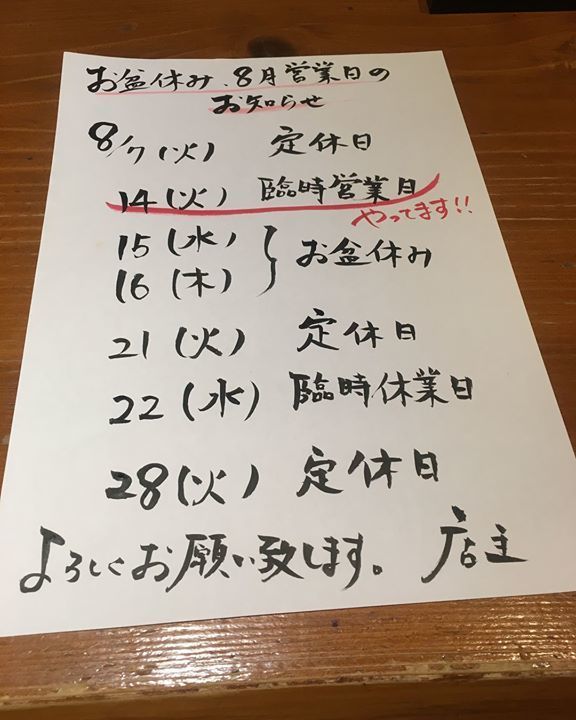 お盆休み、8月営業日の
お知らせ
8/7(火) 定休日
14(火) 臨時営業日
やってます!!
15(水)
16(木) } お盆休み
21(火) 定休日
22(水) 臨時休業日
28(火) 定休日
よろしくお願い致します。 店主